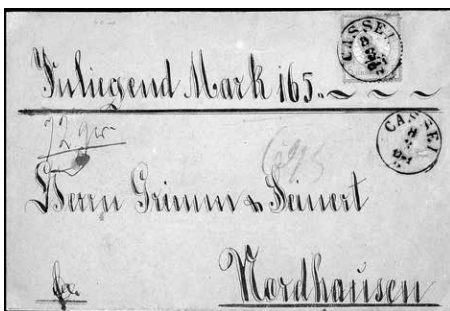 CASSEL
Inliegend Mark 165.
CASSEL
22 gr
Herrn Grimm & Deinert
Nordhausen